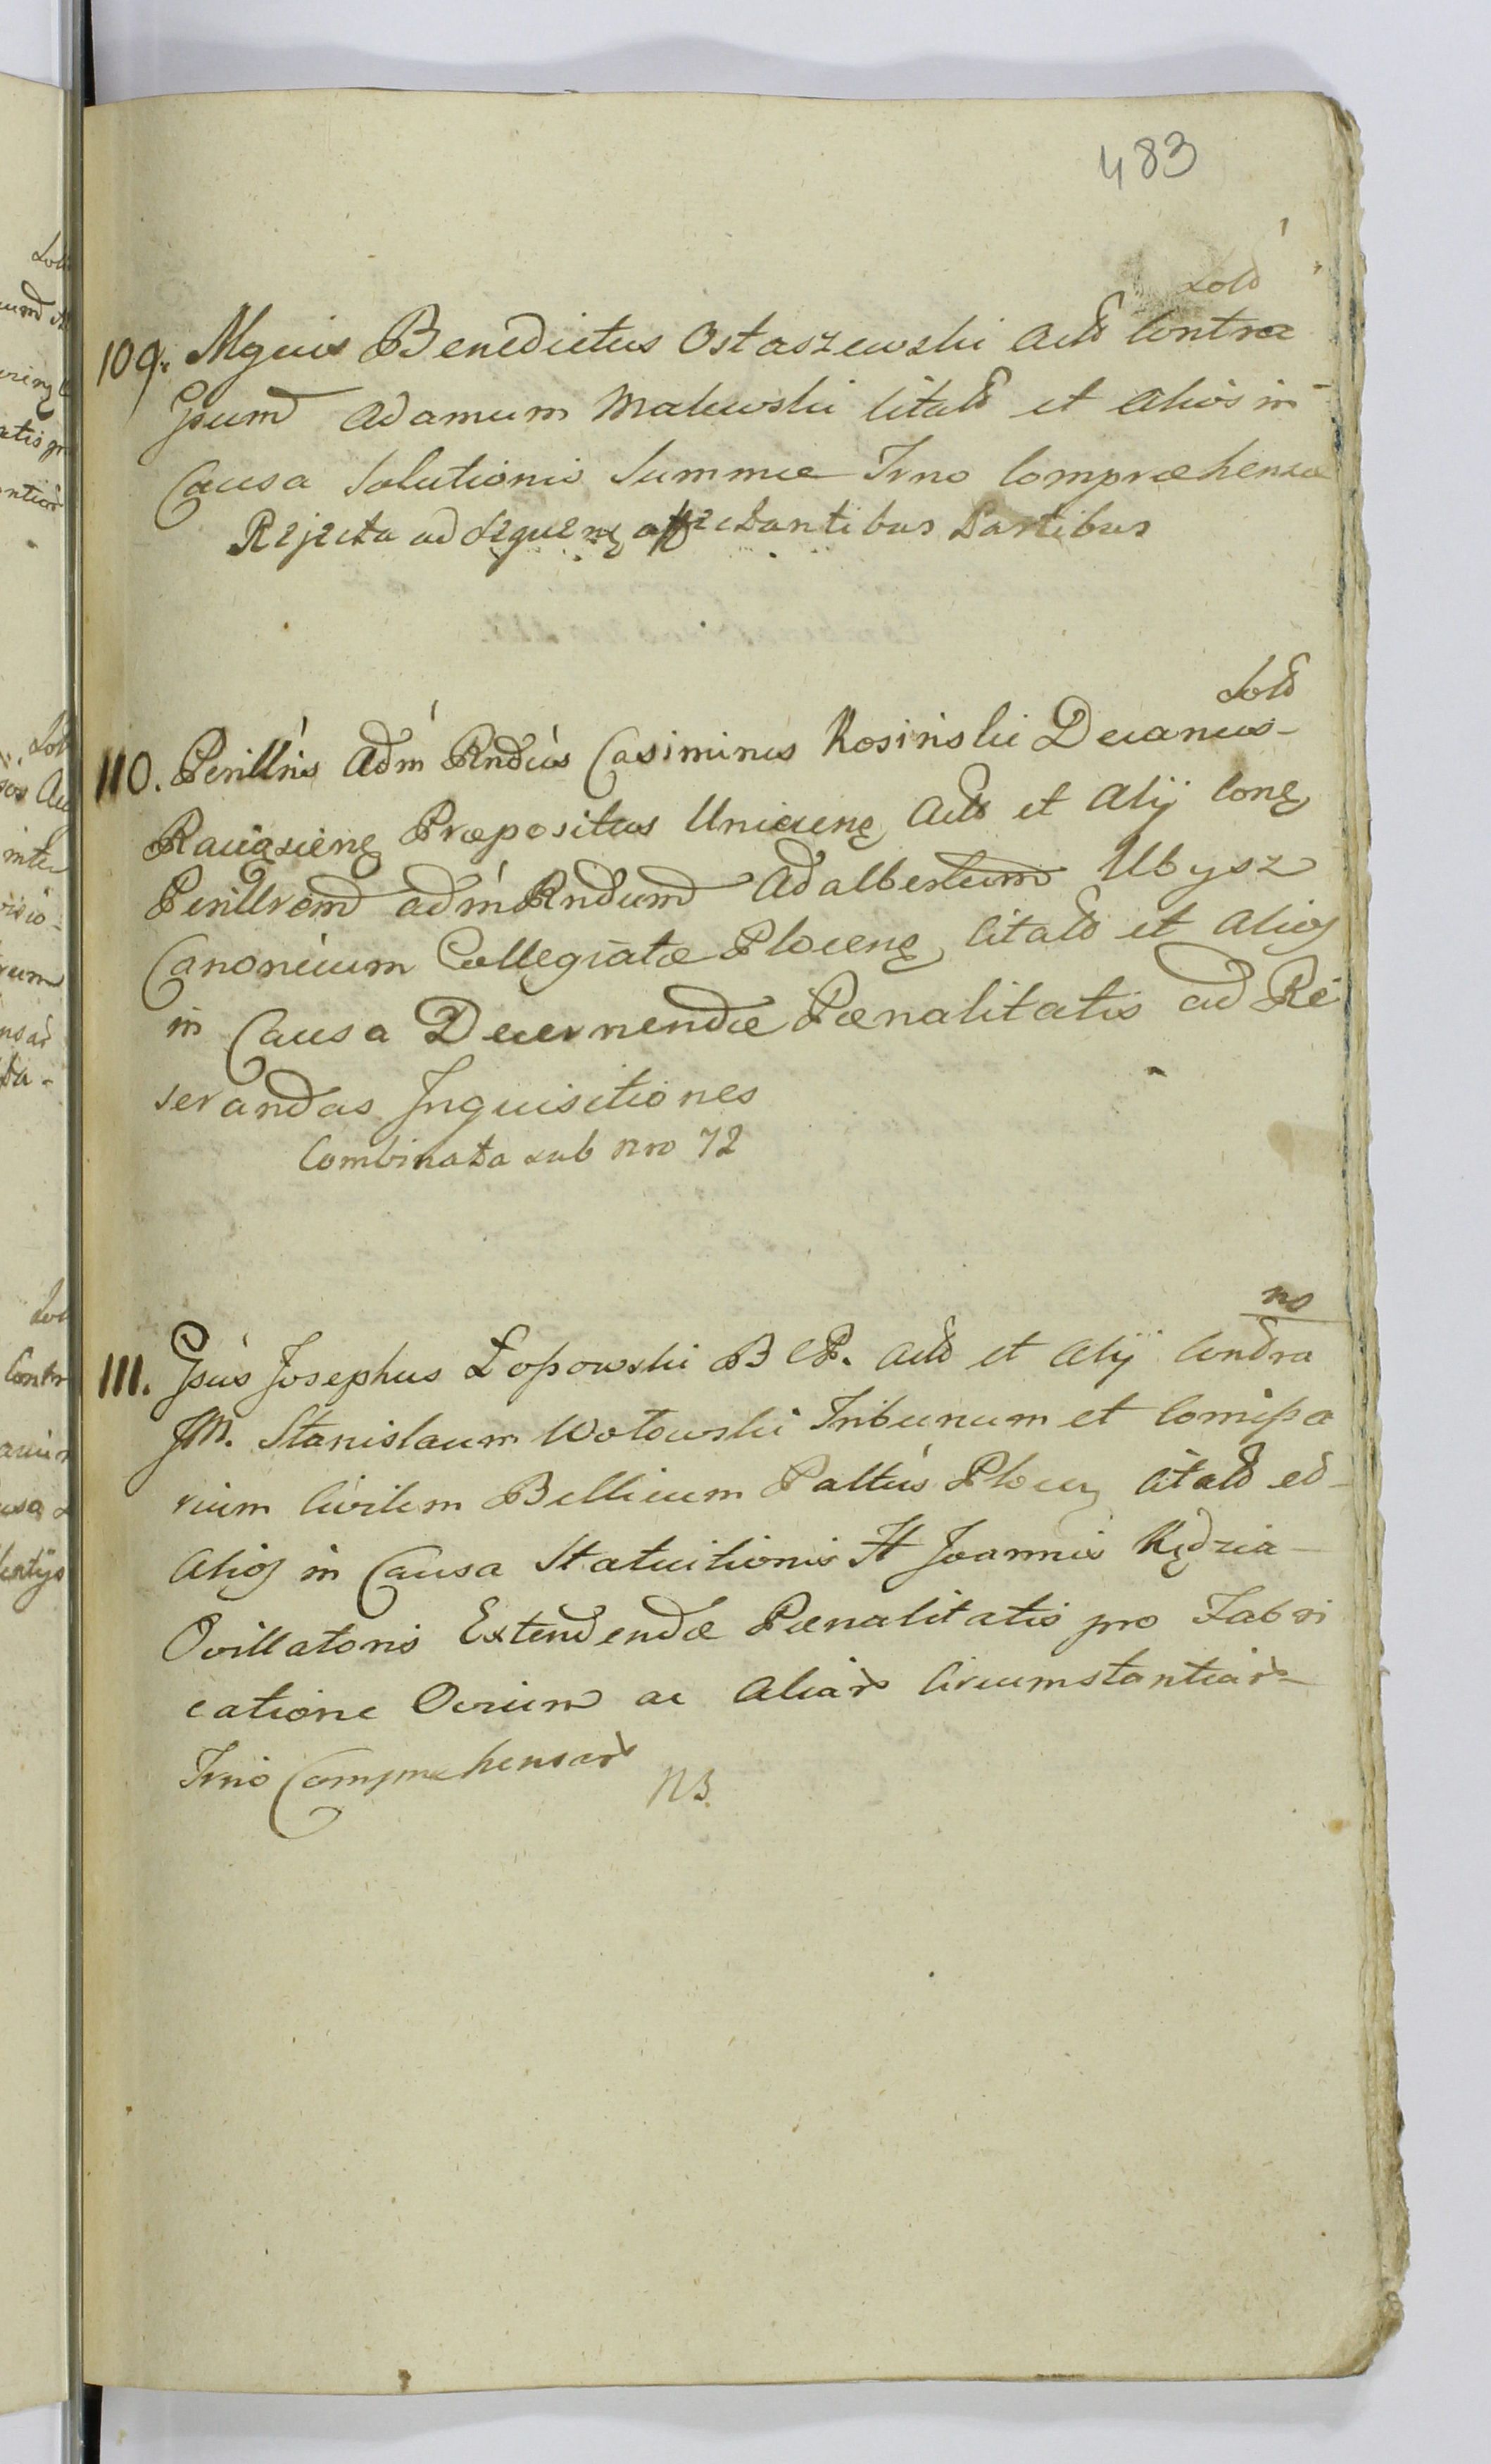 483
Sold
109. Mgcus Benedictus Ostaszewski Actd Contra
Gsum Adamum Malewski Citatd et Alios in
Causa Solutionis Summae Trno Compraehensae
Rejecta ad Sequenę affectantibus Partibus
Sold
110. Perillris Adm Rndus Casimirus Kosinski Decanus
Raciązienę Praepositus Uniecenę Actd et Alij Conę
Perillrem adm Rndum Adalbertum Ubysz
Canonicum Collegiatae Plocenę Citatd et Alios
in Causa Decernendae Paenalitatis ad Re
servandas Inquisitiones
Combinata sub nro 72
no
111. Gsus Josephus Łopowski B P. Actd et Alij Contra
JM. Stanislaum Wotowski Tribunum et Comissa
rium Civilem Bellicum Palttus Plocę Citatd et
Alios in Causa Statuitionis H Joannis Kędzia
Ovillatoris Extendendae Paenalitatis pro Fabri
catione Ovium ac Aliar Circumstantiar
Trno Compraehensar
NB.